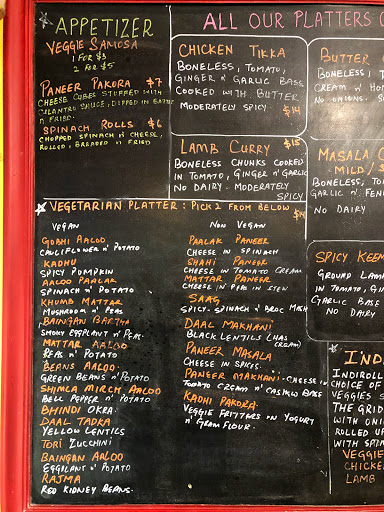 APPETIZER
VEGGIE SAMOSA
1 FOR $3
2 FOR $5
PANEER PAKORA $7
CHEESE CUBES STUFFED WITH
CILANTRO SAUCE, DIPPED IN BATTER
N' FRIED.
SPINACH ROLLS $6
CHOPPED SPINACH N' CHEESE,
ROLLED, BREADED N' FRIED
ALL OUR PLATTERS
CHICKEN TIKKA
BONELESS, TOMATO,
GINGER N' GARLIC BASE
COOKED WITH BUTTER
MODERATELY SPICY. $14
LAMB CURRY $15
BONELESS CHUNKS COOKED
IN TOMATO, GINGER N' GARLIC
NO DAIRY. MODERATELY
SPICY
BUTTER
BONELESS, T
CREAM N' HO
NO ONIONS. S
MASALA C
MILD/S
BONELESS, TO
GARLIC N' FEN
NO DAIRY
SPICY KEEM
GROUND LAM
IN TOMATO, GIN
GARLIC BASE
NO DAIRY
VEGETARIAN PLATTER: PICK 2 FROM BELOW $14
VEGAN
GOBHI AALOO
CAULIFLOWER N' POTATO
KADHU
SPICY PUMPKIN
AALOO PAALAK
SPINACH N' POTATO
KHUMB MATTAR
MUSHROOM N' PEAS
BAINGAN BARTHA
SMOKY EGGPLANT N' PEAS
MATTAR AALOO
PEAS N' POTATO
BEANS AALOO
GREEN BEANS N' POTATO
SHIMLA MIRCH AALOO
BELL PEPPER N' POTATO
BHINDI OKRA
DAAL TADKA
YELLOW LENTILS
TORI ZUCCHINI
BAINGAN AALOO
EGGPLANT N' POTATO
RAJMA
RED KIDNEY BEANS.
NON VEGAN
PAALAK PANEER
CHEESE IN SPINACH
SHAHI PANEER
CHEESE IN TOMATO CREAM
MATTAR PANEER
CHEESE N' PEAS IN STEW
SAAG
SPICY SPINACH N' BROC MASH
DAAL MAKHANI
BLACK LENTILS (HAS
CREAM)
PANEER MASALA
CHEESE IN SPICES.
PANEER MAKHANI - CHEESE IN
TOMATO CREAM N' CASHEW BASE
KADHI PAKORA
VEGGIE FRITTERS IN YOGURT
N' GRAM FLOUR.
'IND
INDIROLL
CHOICE OF
VEGGIES S
THE GRID
WITH ONI
ROLLED UP
WITH SPIN
VEGGIE
CHICKE
LAMB